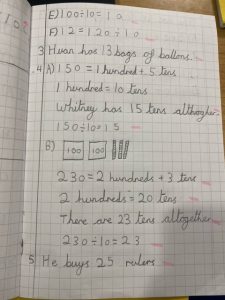 E) 100÷10=10
F) 12=120÷10
3 Huan has 13 bags of ballons.
4 A) 150=1 hundred+5 tens
1 hundred=10 tens
Whitney has 15 tens althogher.
150÷10=15
B) 100 100
230=2 hundreds+3 tens
2 hundreds=20 tens
There are 23 tens altogether
230÷10=23
5 He buys 25 rulers